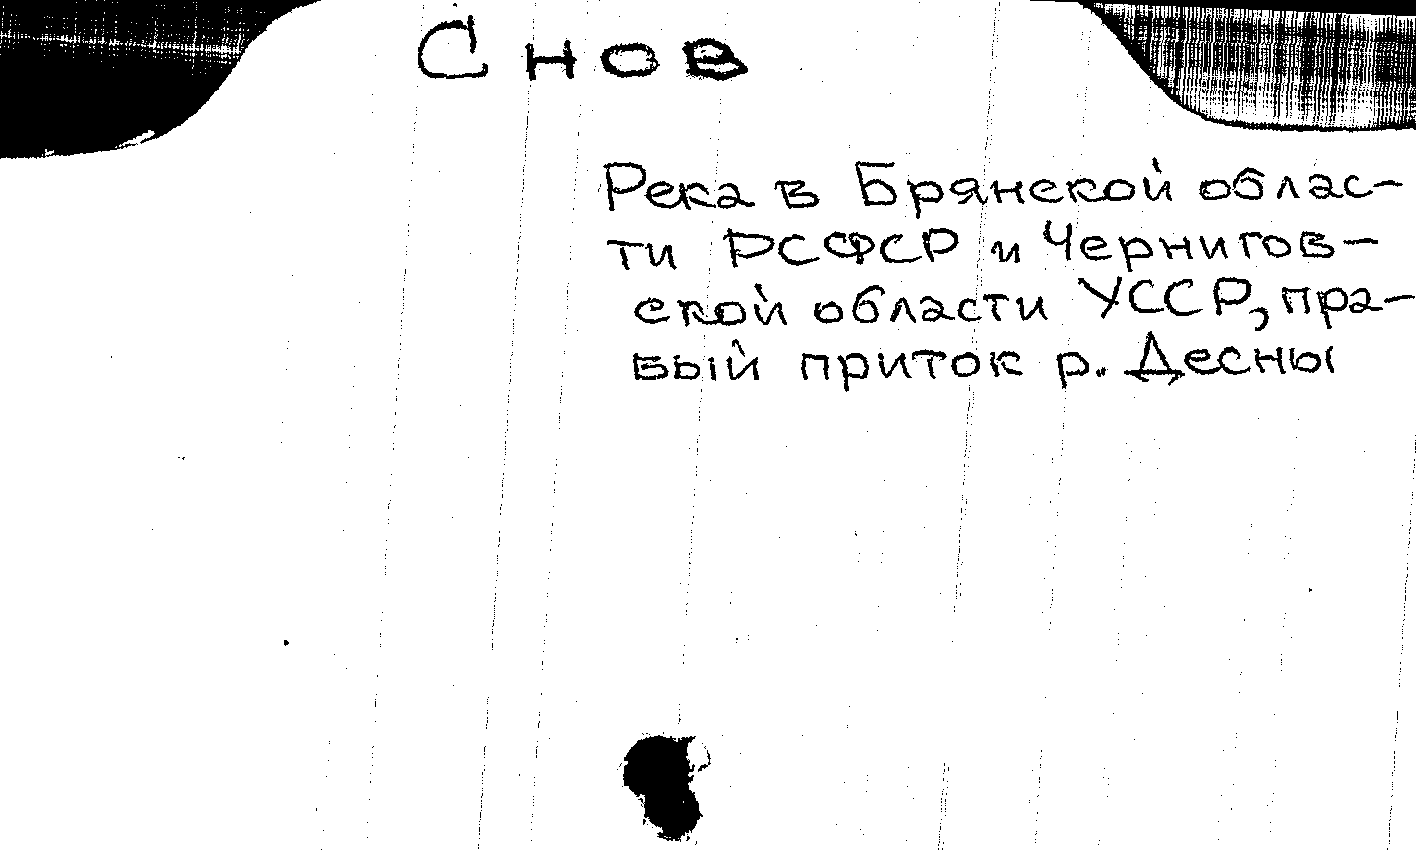 Снов
Река в Брянской облас-
ти РСФСР и Чернигов-
ской области УССР, пра-
вый приток р. Десны